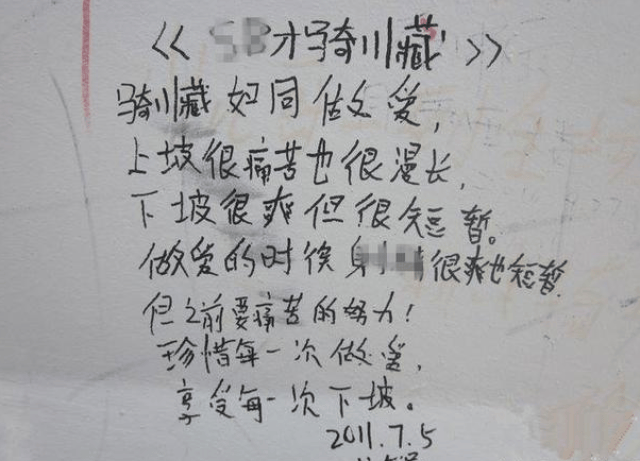 《 SB才骑川藏 》
骑川藏如同做爱,
上坡很痛苦也很漫长,
下坡很爽但很短暂。
做爱的时侯 很爽也短暂
但之前要痛苦的努力!
珍惜每一次做爱,
享受每一次下坡。
2011.7.5